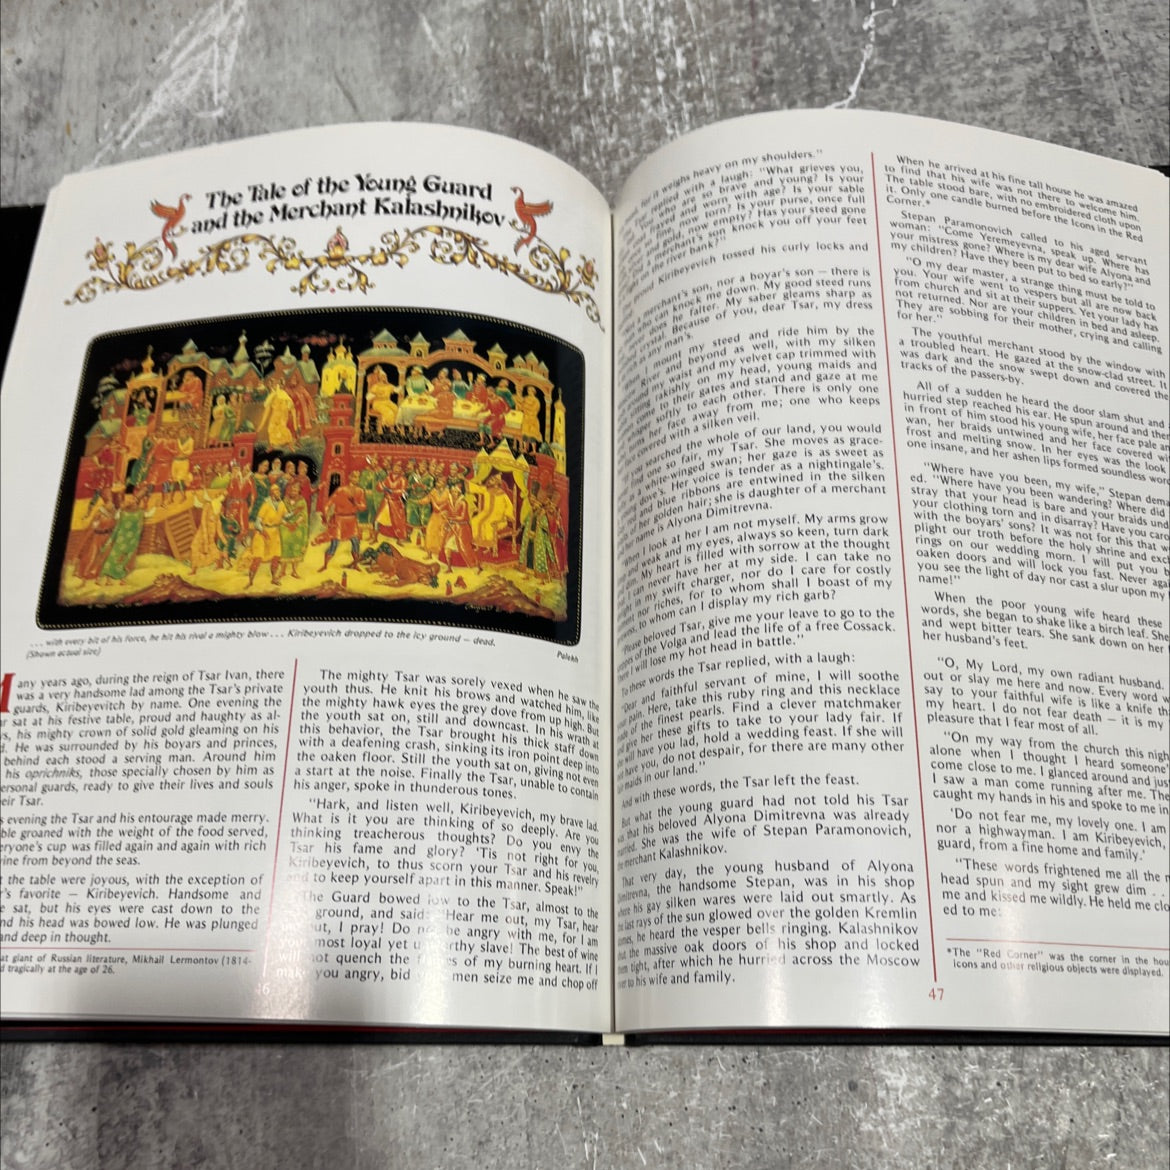 The Tale of the Young Guard
and the Merchant Kalashnikov
... with every bit of his force, he hit his rival a mighty blow ... Kiribeyevich dropped to the icy ground — dead.
(Shown actual size)
Palekh
Many years ago, during the reign of Tsar Ivan, there
was a very handsome lad among the Tsar's private
guards, Kiribeyevitch by name. One evening the
sat at his festive table, proud and haughty as al-
his mighty crown of solid gold gleaming on his
He was surrounded by his boyars and princes,
behind each stood a serving man. Around him
his oprichniks, those specially chosen by him as
ersonal guards, ready to give their lives and souls
eir Tsar.
evening the Tsar and his entourage made merry.
ble groaned with the weight of the food served,
eryone's cup was filled again and again with rich
ine from beyond the seas.
the table were joyous, with the exception of
r's favorite — Kiribeyevich. Handsome and
sat, but his eyes were cast down to the
nd his head was bowed low. He was plunged
and deep in thought.
at giant of Russian literature, Mikhail Lermontov (1814-
d tragically at the age of 26.
The mighty Tsar was sorely vexed when he saw the
youth thus. He knit his brows and watched him, like
the mighty hawk eyes the grey dove from up high. But
the youth sat on, still and downcast. In his wrath at
this behavior, the Tsar brought his thick staff down
with a deafening crash, sinking its iron point deep into
the oaken floor. Still the youth sat on, giving not even
a start at the noise. Finally the Tsar, unable to contain
his anger, spoke in thunderous tones.
"Hark, and listen well, Kiribeyevich, my brave lad.
What is it you are thinking of so deeply. Are you
thinking treacherous thoughts? Do you envy the
Tsar his fame and glory? 'Tis not right for you,
Kiribeyevich, to thus scorn your Tsar and his revelry
and to keep yourself apart in this manner. Speak!"
The Guard bowed low to the Tsar, almost to the
ground, and said: "Hear me out, my Tsar, hear
out, I pray! Do not be angry with me, for I am
your most loyal yet unworthy slave! The best of wine
will not quench the flames of my burning heart. If I
make you angry, bid your men seize me and chop off
6
for it weighs heavy on my shoulders."
replied with a laugh: "What grieves you,
who are so brave and young? Is your
frayed and worn with age? Is your sable
fine, now torn? Is your purse, once full
and gold, now empty? Has your steed gone
did a merchant's son knock you off your feet
on the river bank?"
Kiribeyevich tossed his curly locks and
a merchant's son, nor a boyar's son — there is
who can knock me down. My good steed runs
does he falter. My saber gleams sharp as
crystal. Because of you, dear Tsar, my dress
as any man's.
I mount my steed and ride him by the
River and beyond as well, with my silken
around my waist and my velvet cap trimmed with
sitting rakishly on my head, young maids and
come to their gates and stand and gaze at me
whisper softly to each other. There is only one
turns her face away from me; one who keeps
face covered with a silken veil.
you searched the whole of our land, you would
find one so fair, my Tsar. She moves as grace-
as a white-winged swan; her gaze is as sweet as
dove's. Her voice is tender as a nightingale's.
and blue ribbons are entwined in the silken
of her golden hair; she is daughter of a merchant
her name is Alyona Dimitrevna.
When I look at her I am not myself. My arms grow
and weak and my eyes, always so keen, turn dark
My heart is filled with sorrow at the thought
I can never have her at my side. I can take no
in my swift charger, nor do I care for costly
nor riches, for to whom shall I boast of my
to whom can I display my rich garb?
"Please beloved Tsar, give me your leave to go to the
of the Volga and lead the life of a free Cossack.
There I will lose my hot head in battle."
To these words the Tsar replied, with a laugh:
"Dear and faithful servant of mine, I will soothe
your pain. Here, take this ruby ring and this necklace
made of the finest pearls. Find a clever matchmaker
and give her these gifts to take to your lady fair. If
she will have you lad, hold a wedding feast. If she will
not have you, do not despair, for there are many other
maids in our land."
And with these words, the Tsar left the feast.
But what the young guard had not told his Tsar
was that his beloved Alyona Dimitrevna was already
married. She was the wife of Stepan Paramonovich,
the merchant Kalashnikov.
That very day, the young husband of Alyona
Dimitrevna, the handsome Stepan, was in his shop
where his gay silken wares were laid out smartly. As
the last rays of the sun glowed over the golden Kremlin
domes, he heard the vesper bells ringing. Kalashnikov
shut the massive oak doors of his shop and locked
them tight, after which he hurried across the Moscow
river to his wife and family.
When he arrived at his fine tall house he was amazed
to find that his wife was not there to welcome him.
The table stood bare, with no embroidered cloth upon
it. Only one candle burned before the Icons in the Red
Corner.*
Stepan Paramonovich called to his aged servant
woman: "Come Yeremeyevna, speak up. Where has
your mistress gone? Where is my dear wife Alyona and
my children? Have they been put to bed so early?"
"O my dear master, a strange thing must be told to
you. Your wife went to vespers but all are now back
from church and sit at their suppers. Yet your lady has
not returned. Nor are your children in bed and asleep.
They are sobbing for their mother, crying and calling
for her."
The youthful merchant stood by the window with
a troubled heart. He gazed at the snow-clad street. It
was dark and the snow swept down and covered the
tracks of the passers-by.
All of a sudden he heard the door slam shut and
hurried step reached his ear. He spun around and the
in front of him stood his young wife, her face pale an
wan, her braids untwined and her face covered wi
frost and melting snow. In her eyes was the look
one insane, and her ashen lips formed soundless word
"Where have you been, my wife," Stepan dema
ed. "Where have you been wandering? Where did
stray that your head is bare and your braids und
your clothing torn and in disarray? Have you caro
with the boyars' sons? It was not for this that w
plight our troth before the holy shrine and exc
rings on our wedding morn. I will put you b
oaken doors and will lock you fast. Never aga
you see the light of day nor cast a slur upon my
name!"
When the poor young wife heard these
words, she began to shake like a birch leaf. She
and wept bitter tears. She sank down on her
her husband's feet.
"O, My Lord, my own radiant husband.
out or slay me here and now. Every word
say to your faithful wife is like a knife th
my heart. I do not fear death — it is my
pleasure that I fear most of all.
"On my way from the church this nigh
alone when I thought I heard someone'
come close to me. I glanced around and jus
I saw a man come running after me. The
caught my hands in his and spoke to me in
'Do not fear me, my lovely one. I am
nor a highwayman. I am Kiribeyevich,
guard, from a fine home and family.'
"These words frightened me all the m
head spun and my sight grew dim . .
me and kissed me wildly. He held me clo
ed to me:
*The "Red Corner" was the corner in the hou
icons and other religious objects were displayed.
47